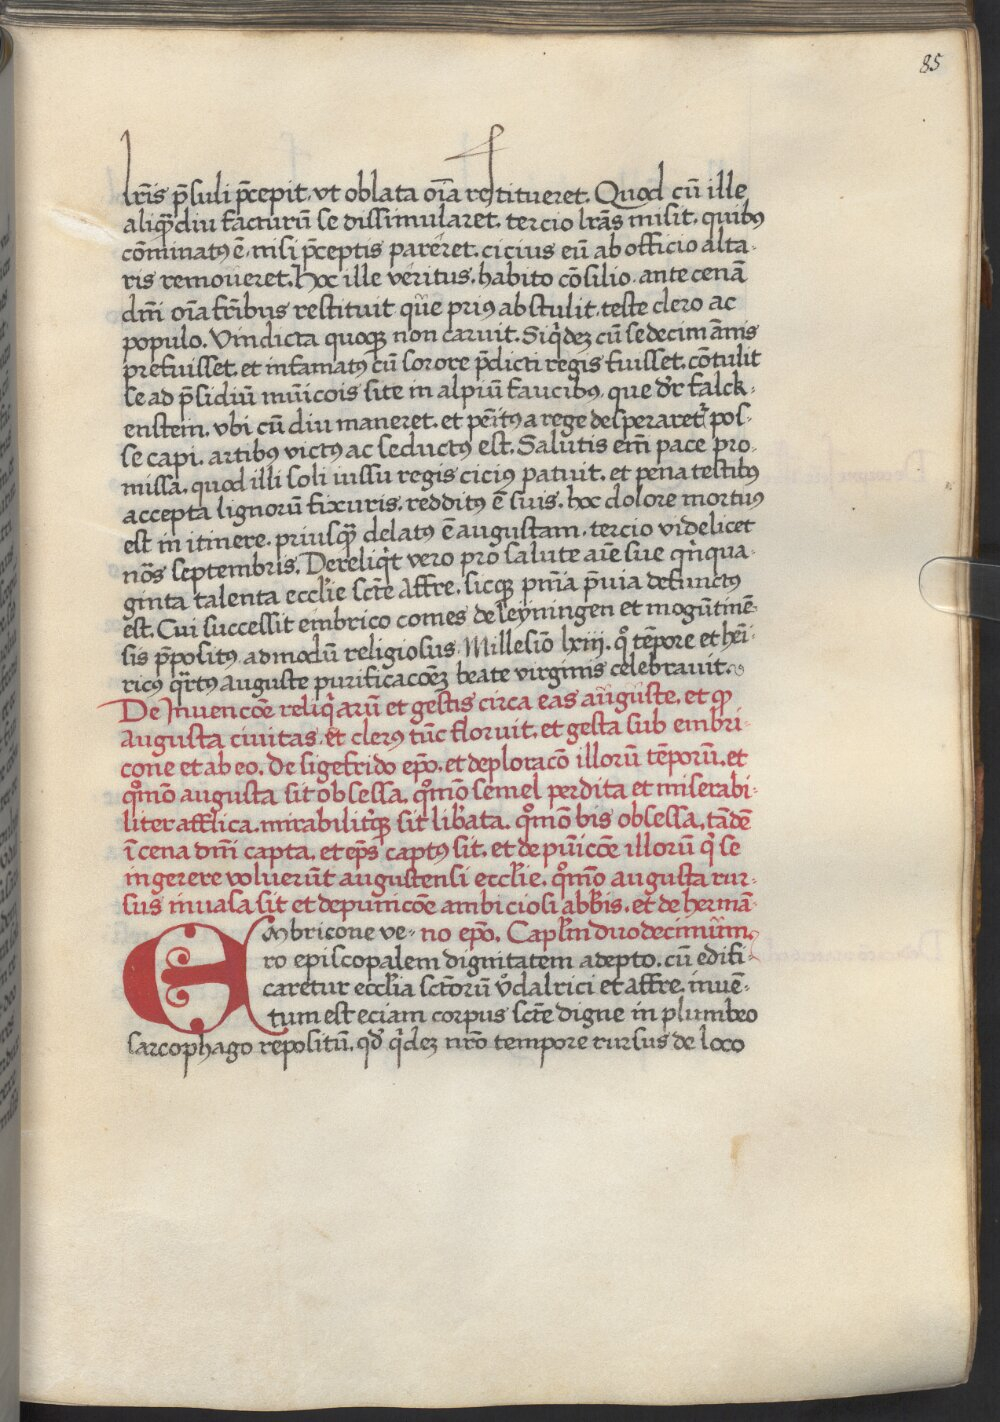 85
lrīs p̄suli p̄cepit. vt oblata oīa restitueret. Quod cū ille
aliqͣ diu facturū se dissimularet. tercio lrās misit. quibꝰ
cōminatꝰ ē. nisi p̄ceptis pareret. cicius eū ab officio alta-
ris remoueret. Hoc ille veritus. habito cōsilio. ante cenā
dn̄i oīa fr̄ibus restituit que priꝰ abstulit. teste clero ac
populo. Vindicta quoqꝫ non caruit. Siqͥdeꝫ cū sedecim ānis
prefuisset. et infamatꝰ cū sorore p̄dicti regis fuisset. cōtulit
se ad p̄sidiū mūicois site in alpiū faucibꝰ. que dr̄ falck-
enstein. vbi cū diu maneret. et penitꝰ a rege desperaretͬ pos-
se capi. artibꝰ victꝰ ac seductꝰ est. Salutis em̄ pace pro-
missa. quod illi soli iussu regis ciciꝰ patuit. et pena testibꝰ
accepta lignorū fixuris. redditꝰ ē suis. hoc dolore mortuꝰ
est in itinere. priusqͣ delatꝰ ē augustam. tercio videlicet
nōs septembris. Dereliqͥt vero pro salute aīe sue qͥnqua-
ginta talenta eccl̄ie sct̄e Affre. sicqꝫ pn̄ia p̄uia defunctꝰ
est. Cui successit embrico comes de leyningen et mogūtinē-
sis p̄positꝰ. admodū religiosus. Millesīo lxiii. qͦ tēpore et hēi-
ricꝰ qͣrtꝰ auguste purificacōeꝫ beate virginis celebrauit.
De Inuencōe reliqͥarū et gestis circa eas auguste. et qͣ
augusta ciuitas. et clerꝰ tūc floruit. et gesta sub embri-
cone et ab eo. de sigefrido ep̄o. et deploracō illorū tēporū. et
qͦmō augusta sit obsessa. qͦmō semel perdita et miserabi-
liter afflica. mirabilitͬqꝫ sit lib̄ata. qͦmō bis obsessa. tādē
ī cena dn̄i capta. et ep̄s captꝰ sit. et de pūicōe illorū qͥ se
ingerere voluerūt augustensi eccl̄ie. qͦmō augusta rur-
sus inuasa sit et de punicōe ambiciosi abb̄is. et de hermā-
Embricone ve- no ep̄o. Capl̄m duodecimum.
ro episcopalem dignitatem adepto. cū edifi-
caretur eccl̄ia sctōrū vͦdalrici et affre. inuē-
tum est eciam corpus scte digne in plumbeo
sarcophago repositū. qd̄ qͥdeꝫ nr̄o tempore rursus de loco